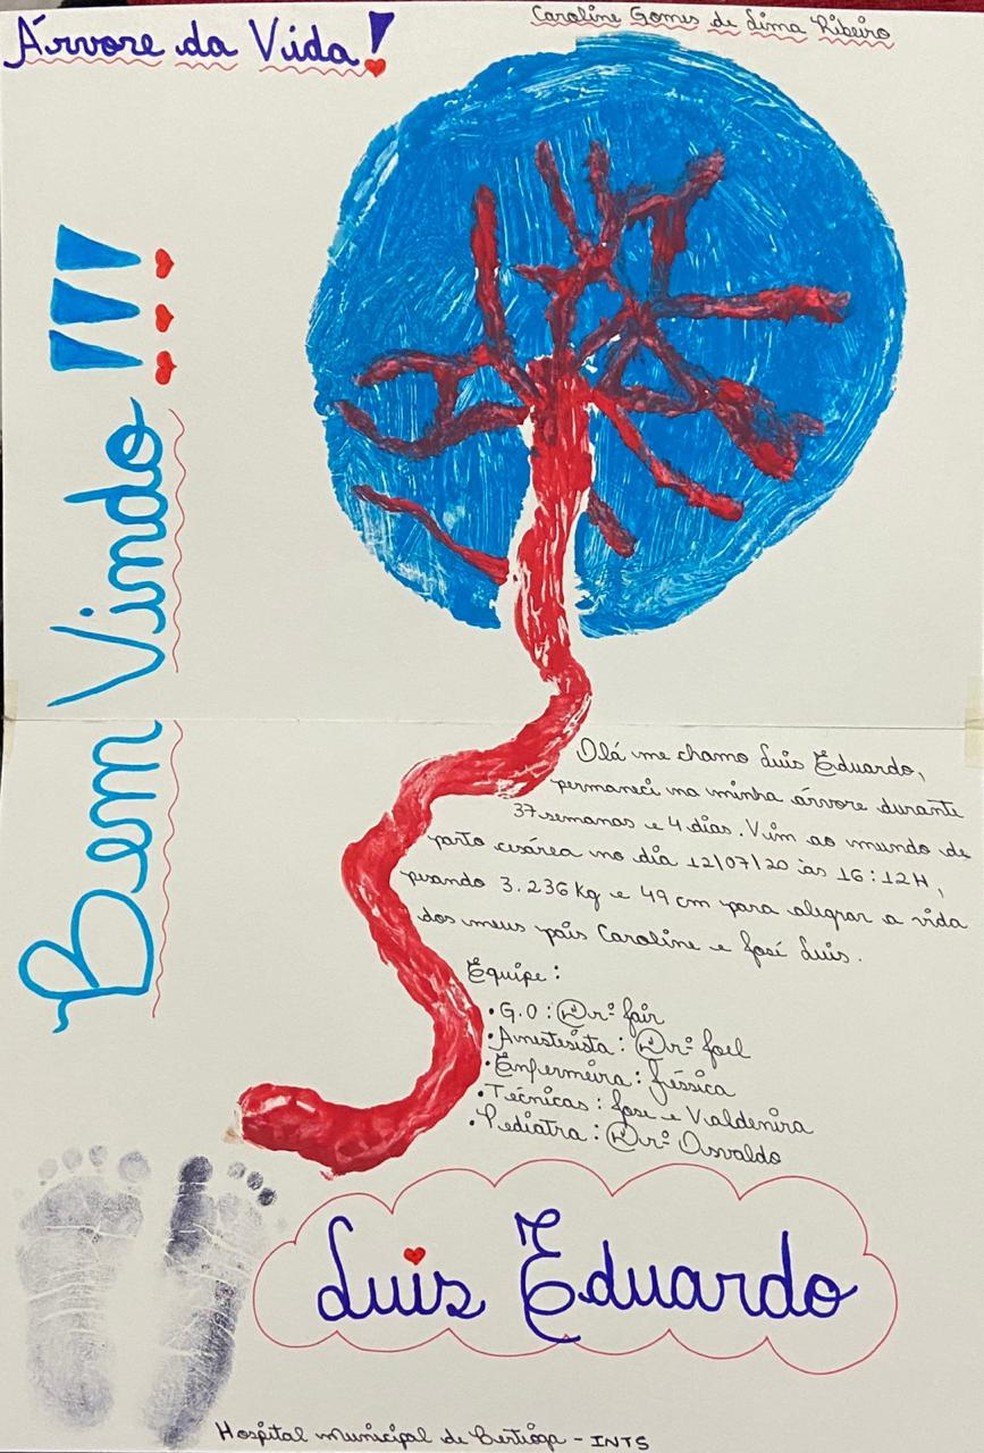 Árvore da Vida!
Caroline Gomes de Lima Ribeiro
Bem Vindo!!!
Olá me chamo Luis Eduardo,
permaneci na minha árvore durante
37 semanas e 4 dias. Vim ao mundo de
parto cesárea no dia 12/07/20 às 16:12H,
pesando 3.236 Kg e 49 cm para alegrar a vida
dos meus pais Caroline e José Luis.
Equipe:
• G.O: Drº Jair
• Anestesista: Drº Joel
• Enfermeira: Jéssica
• Técnicas: Jose e Valdenira
• Pediatra: Drº Osvaldo
Luis Eduardo
Hospital municipal de Bertioga - INTS